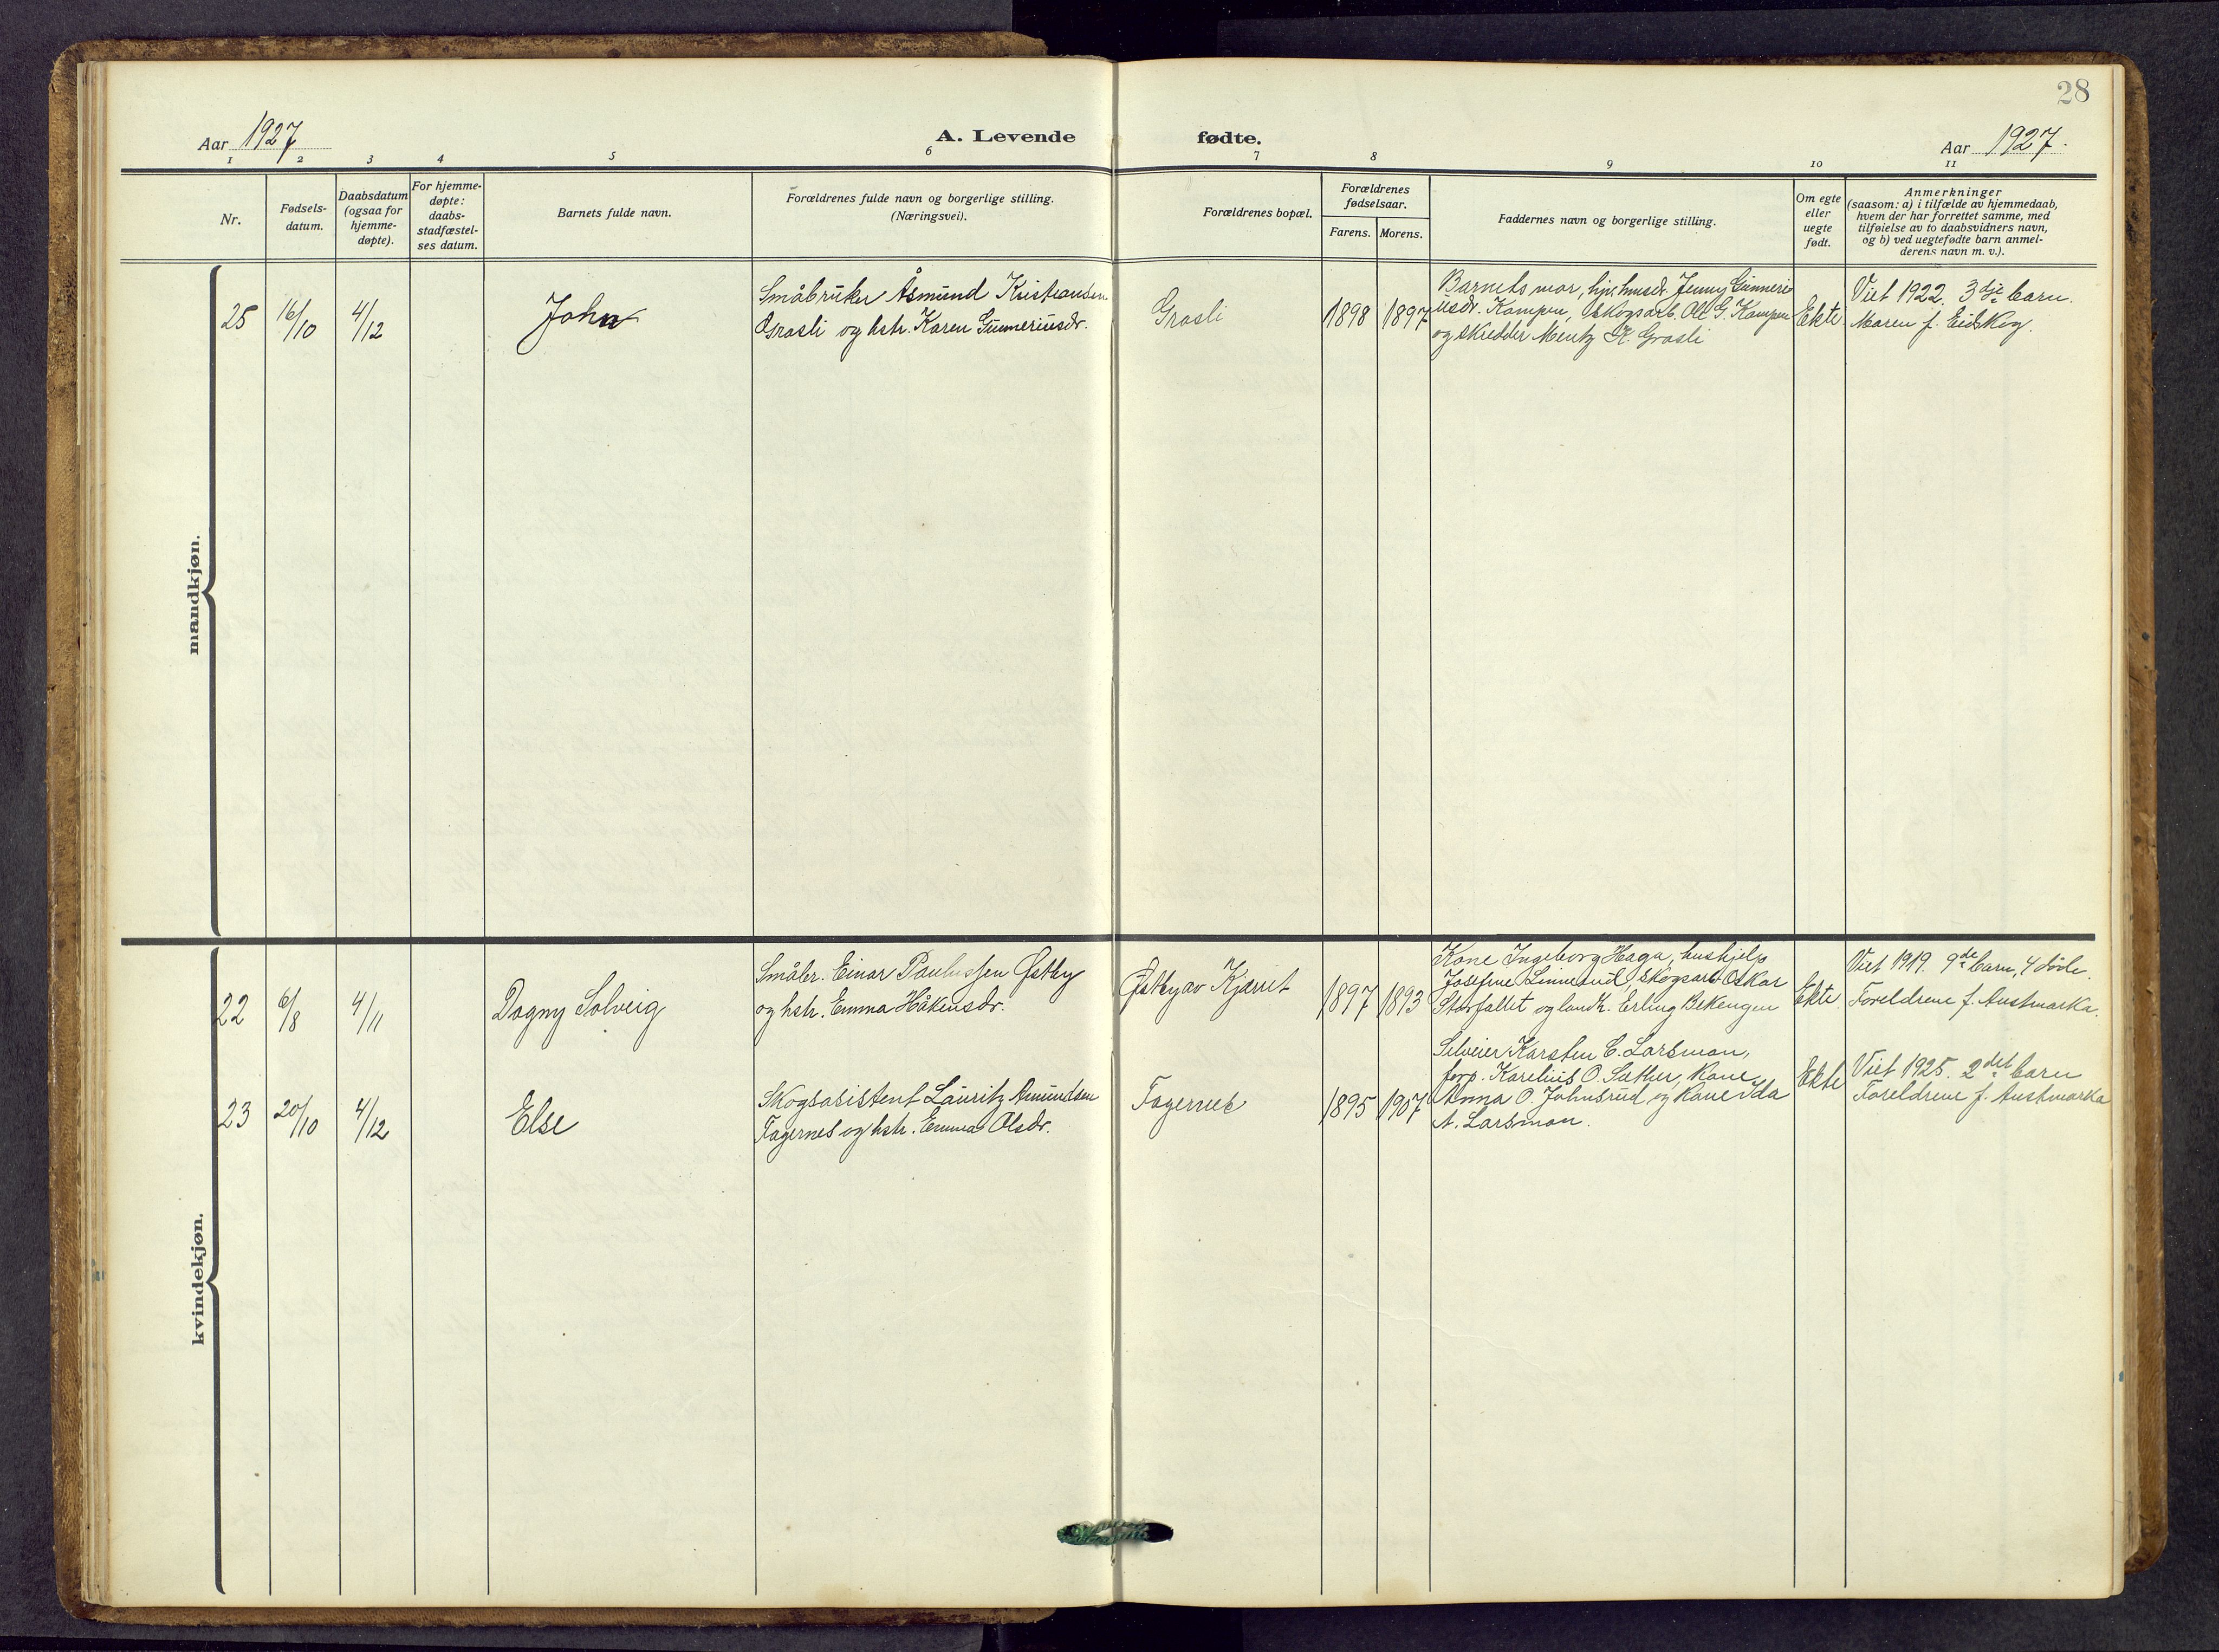 28
Aar 1927
A. Levende
fødte.
Aar 1927.
1 2 3 4 5 6 7 8 9 10 11
Nr.
Fødsels-
datum.
Daabsdatum
(ogsaa for
hjemme-
døpte).
For hjemme-
døpte:
daabs-
stadfæstel-
ses datum.
Barnets fulde navn.
Forældrenes fulde navn og borgerlige stilling.
(Næringsvei).
Forældrenes bopæl.
Forældrenes
fødselsaar.
Farens. Morens.
Faddernes navn og borgerlige stilling.
Om egte
eller
uegte
født.
Anmerkninger
(saasom: a) i tilfælde av hjemmedaab,
hvem der har forrettet samme, med
tilføielse av to daabsvidners navn,
og b) ved uegtefødte barn anmel-
derens navn m. v.).
mandkjøn.
25
16/10
4/12
John
Småbruker Åsmund Kristiansen
Grasli og hstr. Karen Gunneriusdr.
Grasli
1898
1897
Barnets mor, hju husdr. Jenny Gunneri
usdr. Kampen, skogsarb. Ole G. Kampen
og skredder Mentz K. Grasli
Ekte
Viet 1922. 3dje barn.
Maren f. Eidskog.
kvindekjøn.
22
6/8
4/11
Dagny Solveig
Småbr. Einar Paulussen Østby
og hstr. Emma Håkensdr.
Østby av Kjærret
1897
1893
Kone Ingeborg Haga, hushjelp
Josefine Linnerud, skogsarb Oskar
Storfallet og landh. Erling Bekengen
Ekte
Viet 1919. 9de barn, 4 døde.
Foreldrene f. Austmarka.
23
20/10
4/12
Else
Skogsasistent Lauritz Amundsen
Fagernes og hstr. Emma Olsdr.
Fagernes
1895
1907
Selveier Karsten C. Larsmon,
forp. Karelius O. Sæther, Kone
Anna O. Johnsrud og Kone Ida
A. Larsmon.
Ekte
Viet 1925. 2det barn
Foreldrene f. Austmarka